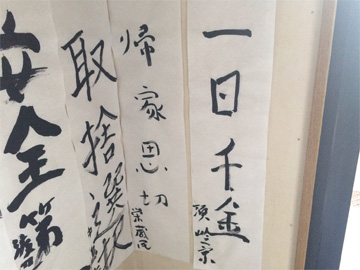 一日千金
頂峰宗
帰家思切
栄蔵院
取捨選択
安全第